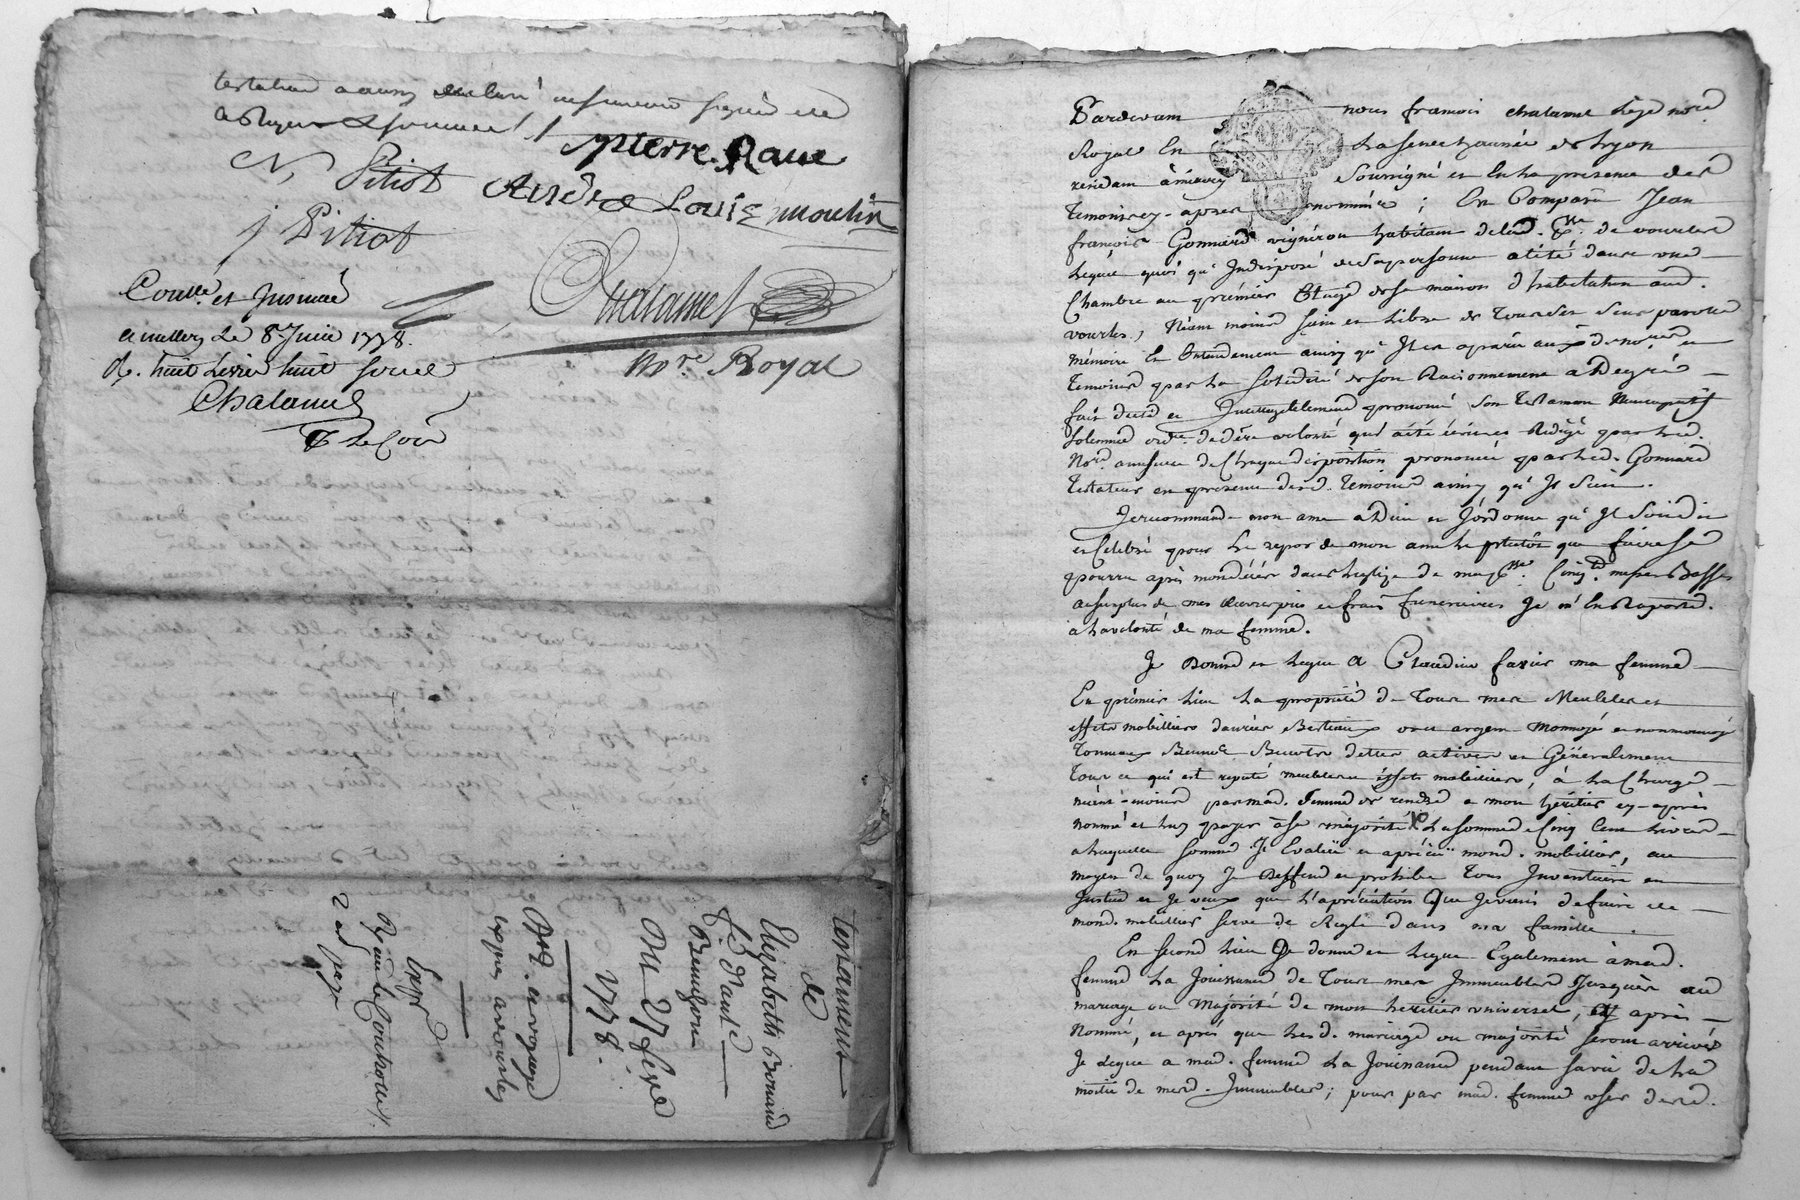 testation a aussy declaré signer de
pierre Raue
N Pitiot
André Louis moulin
J Pitiot
Chalamel
Nore. Royal
Coullé et Insinué
a millery Le 8e Juin 1778.
R. huit Livres huit sous
Chalamel
Testament
de
Elizabeth Bonnard
Du 27 fevr
1778.
Exp. a vourles
Expé
Pardevant nous françois chalamel Lejeune nore
Royal En La senechaussée de Lyon
residant à millery soussigné et En La presence des
Temoins cy-apres nommés ; En Comparu Jean
françois Gonnard vigneron habitant de lad. Psse. de vourles
Lequel quoi qu' Indisposé de sa personne alité dans une
Chambre au premier Etage de sa maison d'habitation aud.
vourles, Néant moins sain et Libre de Tous ses sens parolle
mémoire Et Entendement ainsy qu' Il est aparu auxd. nore. et
Temoins par La solidité de son Raisonnement a De gré
fait dicté et Intelligiblement prononcé son Testament Nuncupatif
solemnel ordre. de dere. volonté qui a été écrit et Redigé par Led.
Nore. a mesure de Chaque disposition prononcée par Led. Gonnard
Testateur en presence desd. Temoins ainsy qu' Il suit.
Je recommande mon ame a Dieu et J'ordonne qu' Il soit dit
et Celebré pour Le repos de mon ame Le plutôt que faire se
pourra après mon décès dans L'eglize de ma Psse. Cinqte. messes Basses
au surplus de mes œuvres pies et frais funeraires Je m'En Raporte
à La volonté de ma femme.
Je Donne et Legue a Claudine favier ma femme
En premier Lieu La proprieté de Tous mes Meubles et
effets mobilliers danrées Bestiaux or et argent Monnoyé et non monnoyé
Tonneaux Bennes Bennots dettes actives et Généralement
Tout ce qui est reputé meubles et éffets mobilliers, à La Charge
néant-moins par mad. femme de rendre a mon héritier cy-après
nommé et Luy payer à sa majorité La somme de Cinq Cent Livres
a Laquelle somme Je Evalue et apréciie mond. mobillier, au
moyen de quoy Je Deffend et prohibe Tous Inventaire en
Justice et Je veux que L'apréciation Que Je viens de faire de
mond. mobillier serve de Regle dans ma famille.
En second Lieu Je donne et Legue Egalement à mad.
femme La Jouissance de Tous mes Immeubles Jusques au
mariage ou Majorité de mon heritier universel, cy après
Nommé, et après que Lesd. mariage ou majorité seront arrivés
Je Legue a mad. femme La Jouissance pendant sa vie de La
moitié de mesd. Immeubles ; pour par mad. femme user desd.